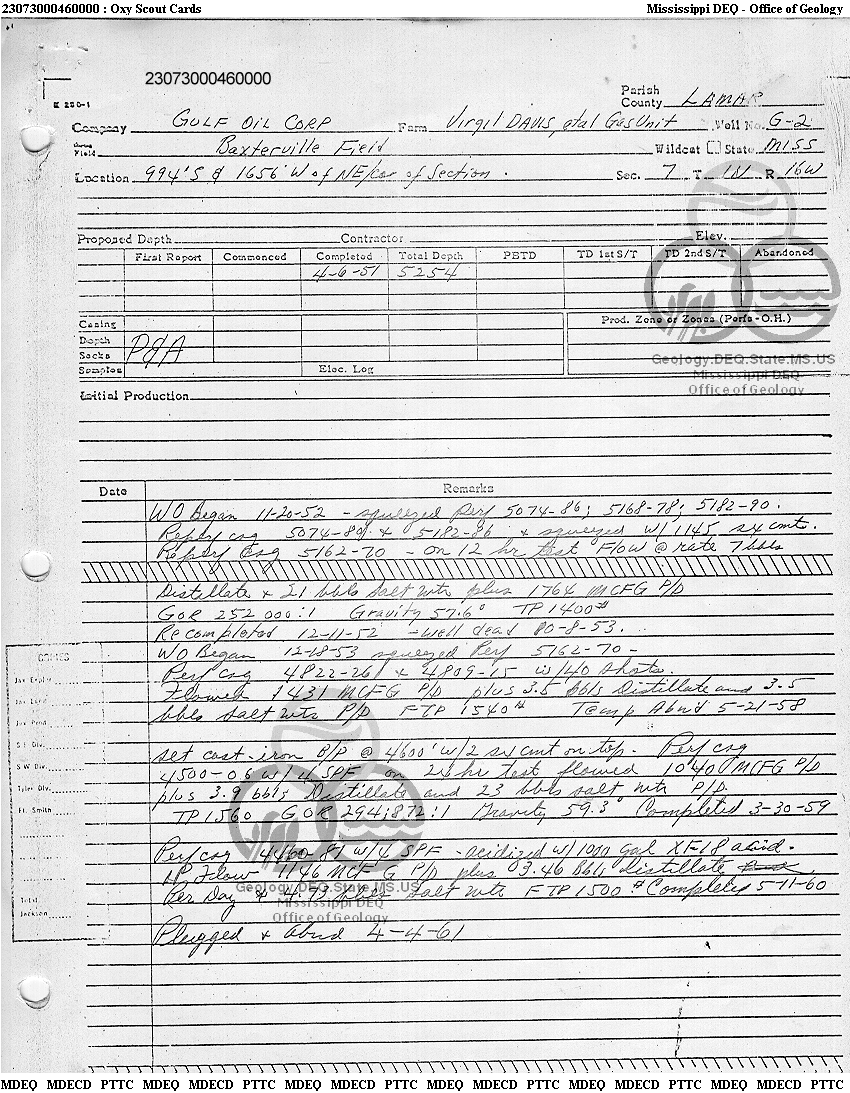 23073000460000 : Oxy Scout Cards Mississippi DEQ - Office of Geology
23073000460000
E 250-1
Parish
County LAMAR
Company GULF OIL CORP Farm Virgil DAVIS, etal Gas Unit Well No. G-2
Field Baxterville Field Wildcat State MISS
Location 994'S & 1656'W of NE/cor of Section. Sec. 7 T 1N R 16W
Proposed Depth Contractor Elev.
First Report Commenced Completed Total Depth PBTD TD 1st S/T TD 2nd S/T Abandoned
4-6-51 5254
Casing Prod. Zone or Zones (Perfs-O.H.)
Depth P&A
Sacks
Samples Elec. Log
Geology.DEQ.State.MS.US
Mississippi DEQ
Office of Geology
Initial Production
Date Remarks
WO Began 11-20-52 - squeezed Perf 5074-86; 5168-78; 5182-90.
Reperf csg 5074-80 & 5182-86 & squeezed w/1145 sx cmt.
Reperf Csg 5162-70 - on 12 hr test Flow @ rate 7 bbls
Distillate & 21 bbls salt wtr plus 1764 MCFG P/D
GOR 252 000:1 Gravity 57.6° TP 1400#
Recompleted 12-11-52 - well dead 10-8-53.
WO Began 12-18-53 squeezed Perf 5162-70 -
COPIES
Perf csg 4822-26 & 4809-15 w/40 shots.
Jax Explor
Flowed 1431 MCFG P/D plus 3.5 bbls Distillate and 3.5
Jax Land
bbls salt wtr P/D FTP 1540# Temp Abn'd 5-21-58
Jax Prod.
S E Div.
set cast-iron B/P @ 4600' w/2 sx cmt on top. Perf csg
S W Div.
4500-06 w/4 SPF on 24 hr test flowed 1040 MCFG P/D
Tyler Div.
plus 3.9 bbls Distillate and 23 bbls salt wtr P/D.
Ft. Smith
TP 1560 GOR 294;872:1 Gravity 59.3° Completed 3-30-59
Perf csg 4460-81 w/4 SPF - acidized w/1000 gal XF-18 acid.
IP Flow 1146 MCFG P/D plus 3.46 Bbls Distillate
Geology.DEQ.State.MS.US
Per Day & 4.73 bbls salt wtr FTP 1500# Completed 5-11-60
Mississippi DEQ
Total
Office of Geology
Jackson
Plugged & abnd 4-4-61
MDEQ MDECD PTTC MDEQ MDECD PTTC MDEQ MDECD PTTC MDEQ MDECD PTTC MDEQ MDECD PTTC MDEQ MDECD PTTC